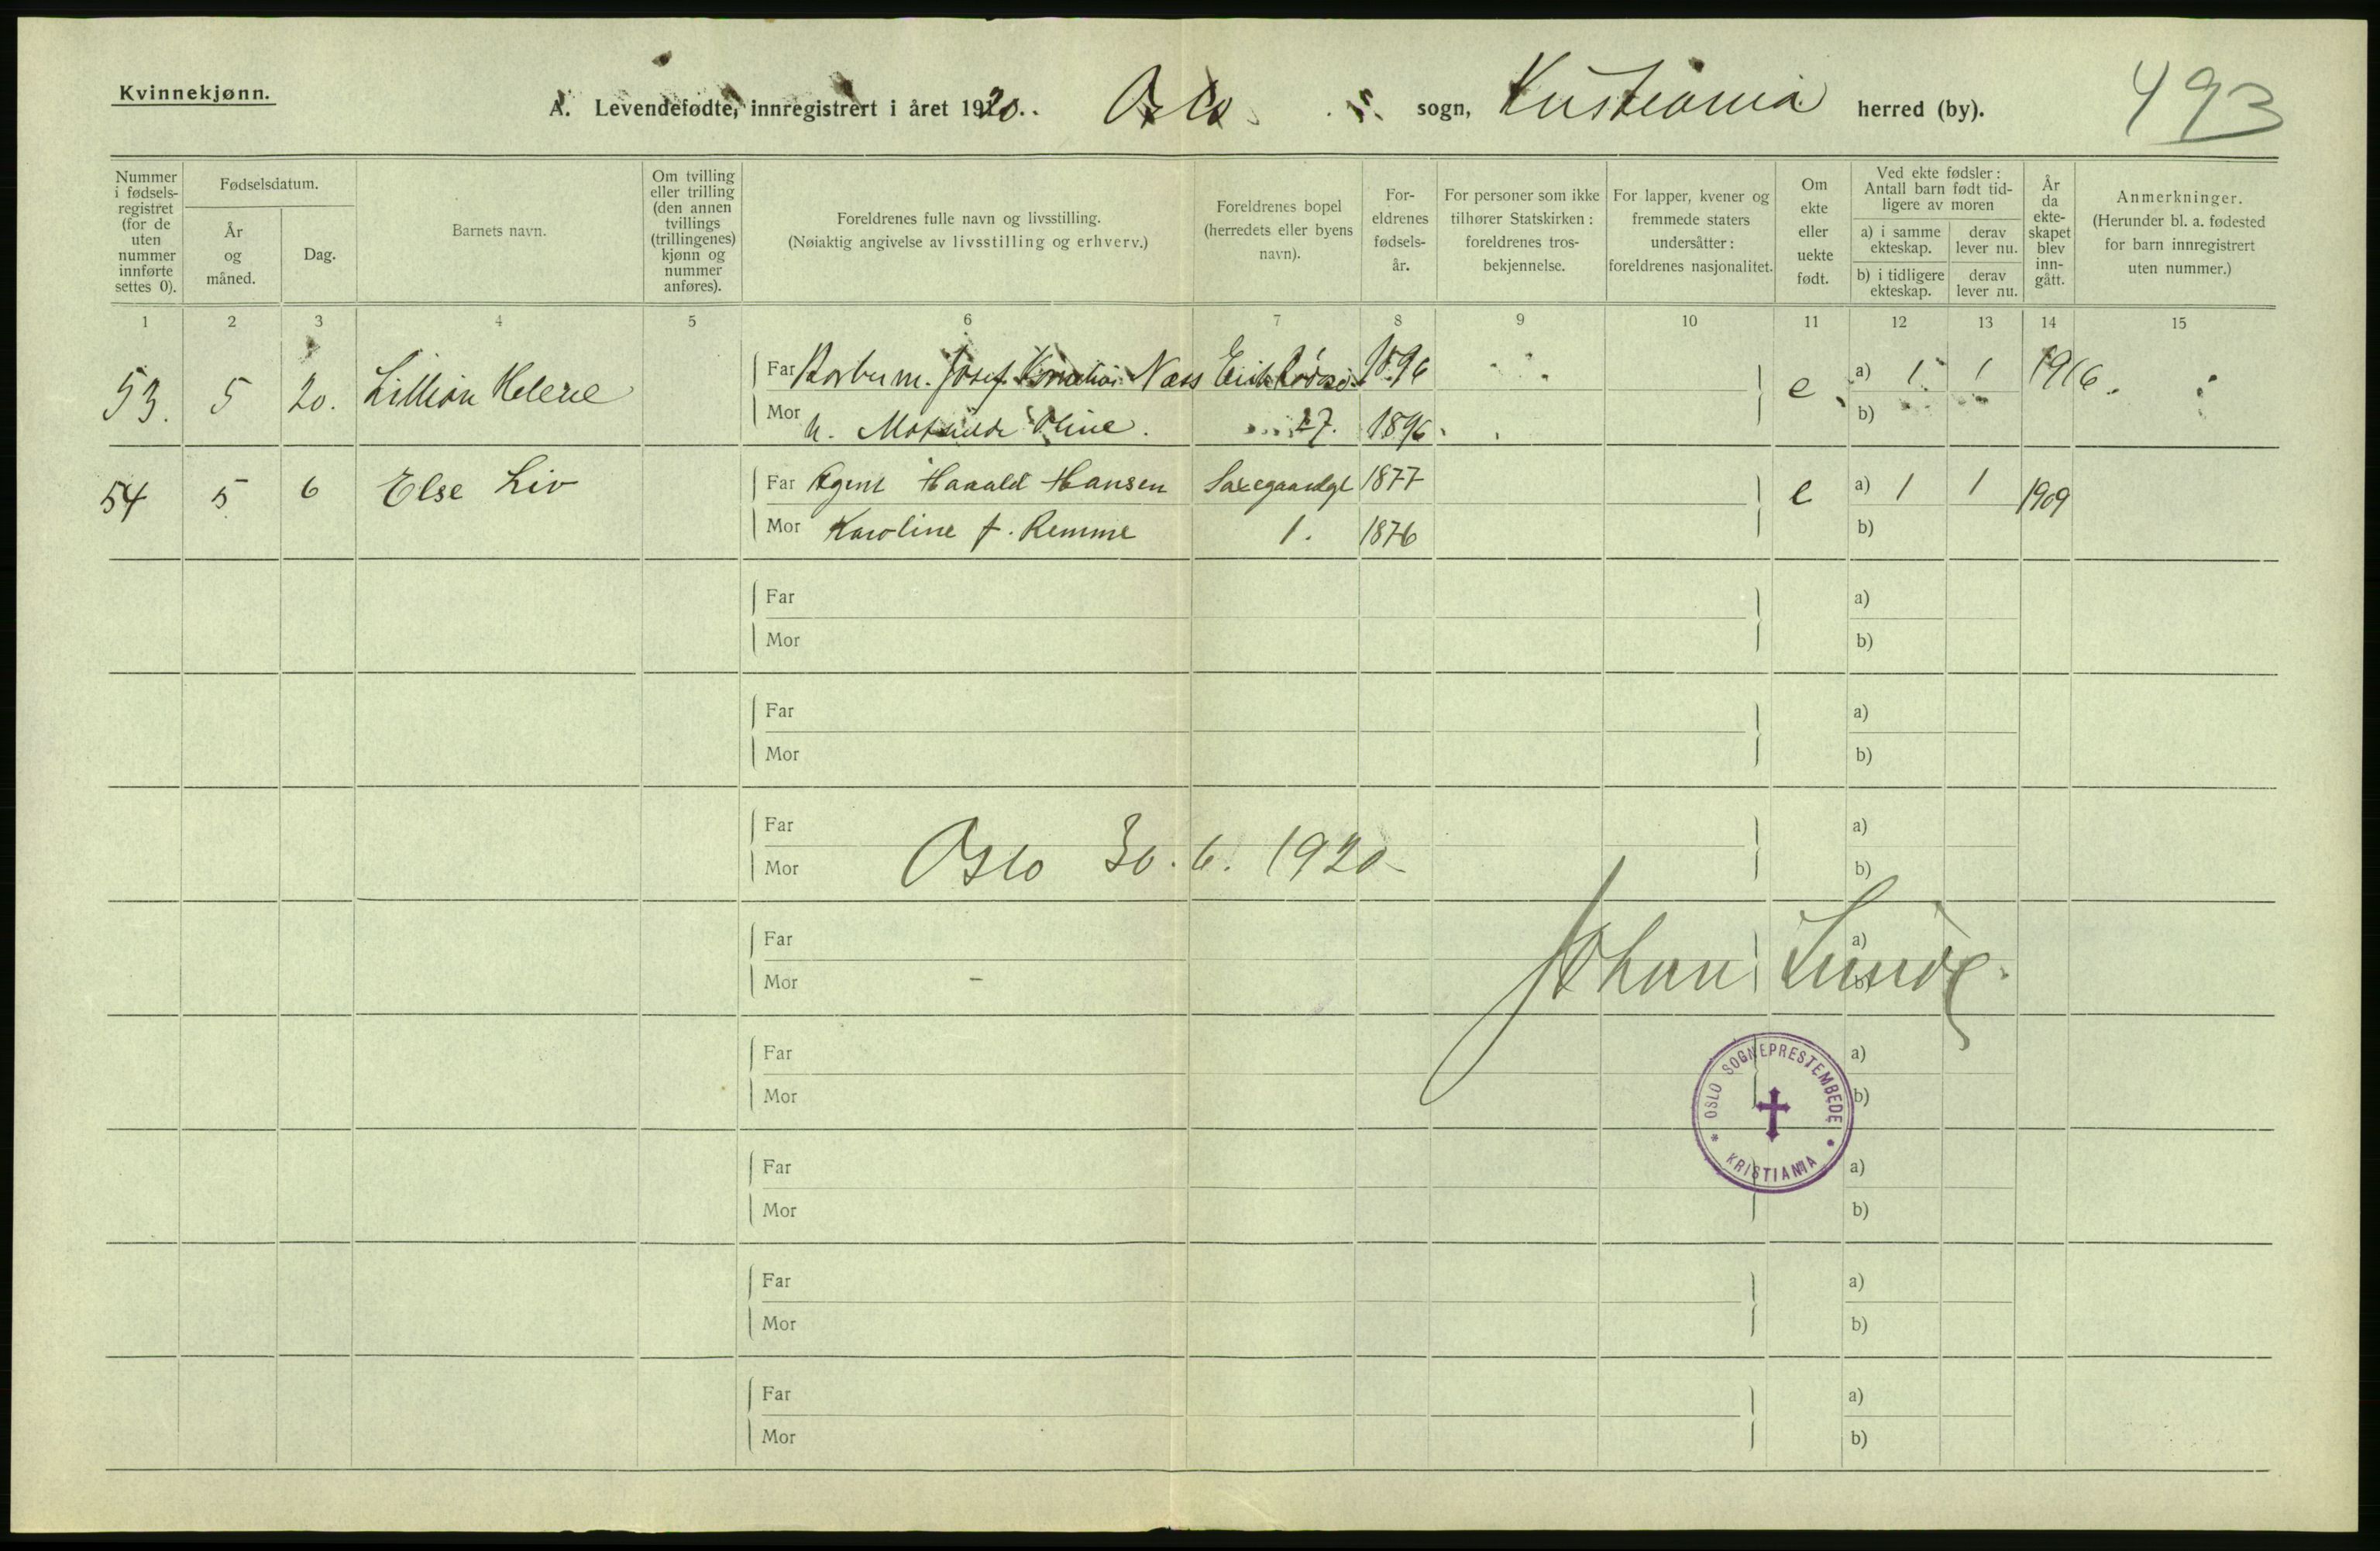 Kvinnekjønn.
A. Levendefødte, innregistrert i året 1920. Oslo sogn, Kristiania herred (by).
493
Nummer i fødsels-registret (for de uten nummer innførte settes 0).
Fødselsdatum.
År og måned.
Dag.
Barnets navn.
Om tvilling eller trilling (den annen tvillings (trillingenes) kjønn og nummer anføres).
Foreldrenes fulle navn og livsstilling.
(Nøiaktig angivelse av livsstilling og erhverv.)
Foreldrenes bopel (herredets eller byens navn).
For-eldrenes fødsels-år.
For personer som ikke tilhører Statskirken: foreldrenes tros-bekjennelse.
For lapper, kvener og fremmede staters undersåtter: foreldrenes nasjonalitet.
Om ekte eller uekte født.
Ved ekte fødsler: Antall barn født tid-ligere av moren
a) i samme ekteskap.
derav lever nu.
b) i tidligere ekteskap.
derav lever nu.
År da ekte-skapet blev inn-gått.
Anmerkninger.
(Herunder bl. a. fødested for barn innregistrert uten nummer.)
1 2 3 4 5 6 7 8 9 10 11 12 13 14 15
53. 5 20. Lillian Helene Far Josef Næss 1896 e a) 1 1 1916.
Mor h. Oline. 27. 1896 b)
54 5 6 Else Liv Far Agent Harald Hansen Saxegaardgt 1877 e a) 1 1 1909
Mor Karoline f. Remme 1. 1876 b)
Far a)
Mor b)
Far a)
Mor b)
Far a)
Mor Oslo 30. 6. 1920 b)
Far a)
Mor Johan Lunde. b)
Far a)
Mor b)
OSLO SOGNEPRESTEMBEDE
KRISTIANIA
Far a)
Mor b)
Far a)
Mor b)
Far a)
Mor b)